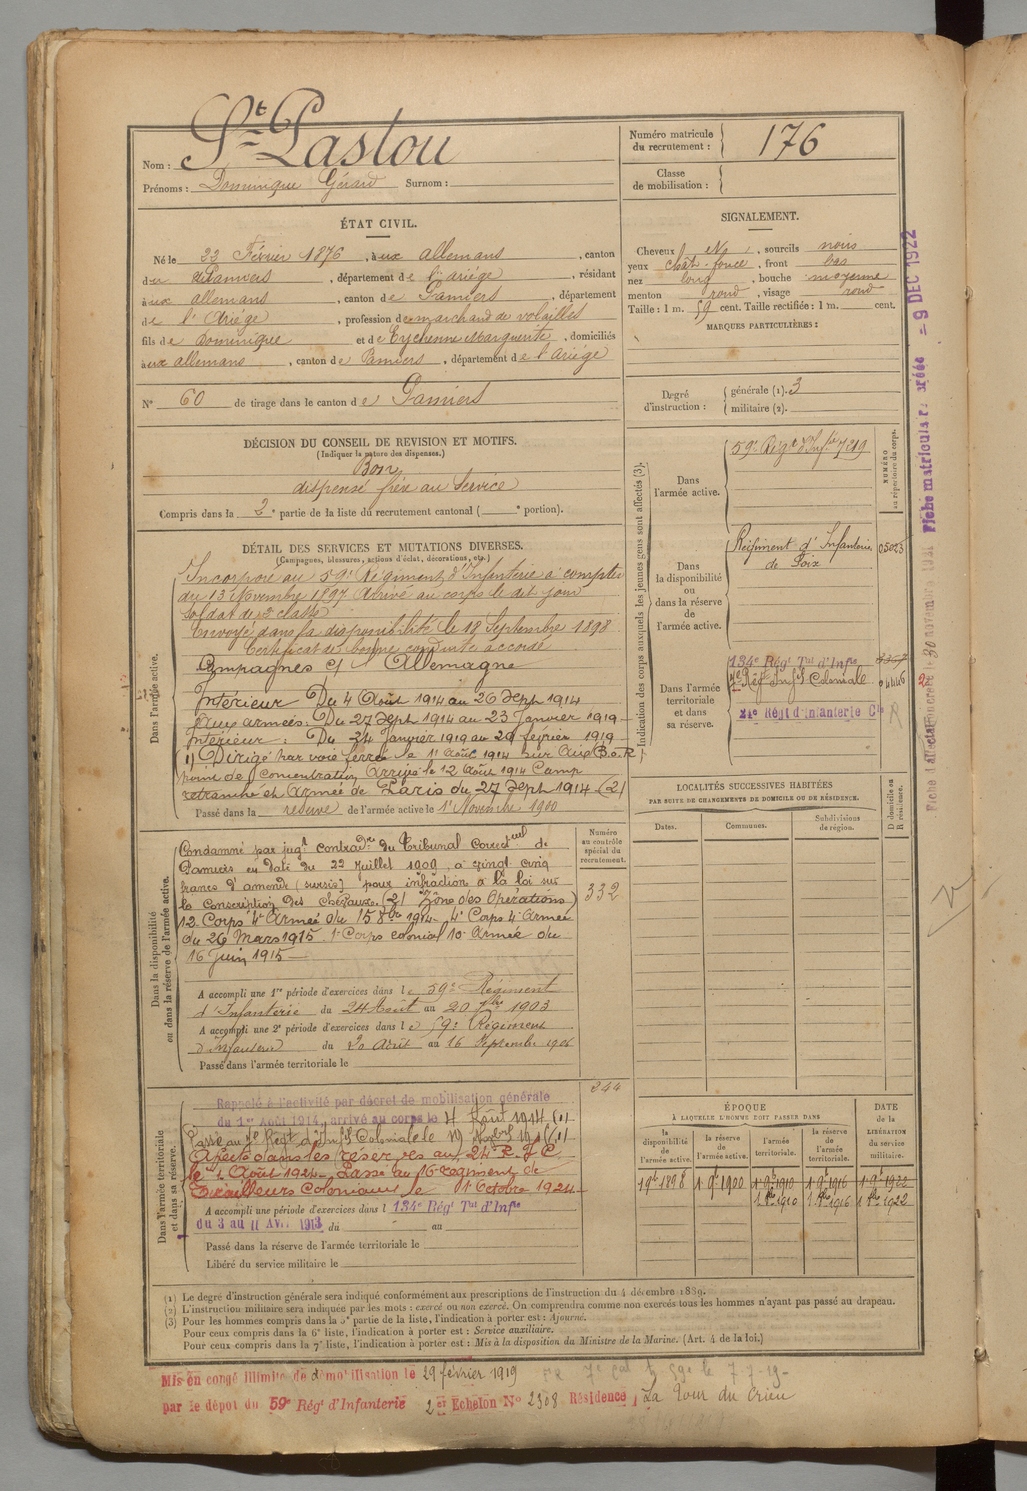 Nom : St Pastou
Prénoms : Dominique Gérard Surnom :
Numéro matricule du recrutement : 176
Classe de mobilisation :
ÉTAT CIVIL.
Né le 22 Février 1876, à ux allemans, canton
de Pamiers, département de l'ariège, résidant
à ux allemans, canton de Pamiers, département
de l'Ariège, profession de marchand de volailles
fils de Dominique et de Eychenne Marguerite, domiciliés
à ux allemans, canton de Pamiers, département de l'Ariège
N° 60 de tirage dans le canton de Pamiers
SIGNALEMENT.
Cheveux N, sourcils noirs
yeux chât-foncé, front bas
nez long, bouche moyenne
menton rond, visage rond
Taille : 1 m. 59 cent. Taille rectifiée : 1 m. cent.
MARQUES PARTICULIÈRES :
Degré d'instruction : générale (1). 3
militaire (2).
DÉCISION DU CONSEIL DE REVISION ET MOTIFS.
(Indiquer la nature des dispenses.)
Bon
dispensé frère au Service
Compris dans la 2e partie de la liste du recrutement cantonal ( e portion).
DÉTAIL DES SERVICES ET MUTATIONS DIVERSES.
(Campagnes, blessures, actions d'éclat, décorations, etc.)
Dans l'armée active.
Incorporé au 59e Régiment d'Infanterie à compter
du 13 Novembre 1897 Arrivé au corps le dit jour
Soldat de 2e classe
Envoyé dans la disponibilité le 18 Septembre 1898
Certificat de bonne conduite accordé
Campagnes c/ l'Allemagne
Intérieur Du 4 Août 1914 au 26 Sept 1914
Aux armées : Du 27 Sept 1914 au 23 Janvier 1919
Intérieur : Du 24 Janvier 1919 au 28 février 1919
(1) Dirigé par voie ferrée le 11 Août 1914 sur
Point de concentration Arrivé le 12 Août 1914 Camp
retranché et Armée de Paris du 27 Sept 1914 (2)
Passé dans la réserve de l'armée active le 1er Novembre 1900
Dans la disponibilité ou dans la réserve de l'armée active.
Condamné par jugt contradre du Tribunal Correctnel de
Pamiers en date du 22 Juillet 1909 à vingt cinq
francs d'amende (sursis) pour infraction à la loi sur
la conscription des chevaux. (2) Zône des Opérations)
12 Corps 4e Armée du 15 8bre 1914, 4e Corps 4e Armée
du 26 Mars 1915 1er Corps colonial 10e Armée du
16 Juin 1915
Numéro au contrôle spécial du recrutement.
332
A accompli une 1re période d'exercices dans le 59e Régiment
d'Infanterie du 24 Août au 20 7bre 1903
A accompli une 2e période d'exercices dans le 59e Régiment
d'Infanterie du 20 Août au 16 Septembre 1906
Passé dans l'armée territoriale le
244
Dans l'armée territoriale et dans sa réserve.
Rappelé à l'activité par décret de mobilisation générale
du 1er Août 1914, arrivé au corps le 4 Août 1914 (1)
Passé au 7e Régt d'Infie Coloniale le 19
Affecté dans les réserves au 24e R.I.C.
le 1 Août 1924 - Passé au 16e régiment de
Tirailleurs Coloniaux le 1er Octobre 1924
A accompli une période d'exercices dans l 134e Régt Tial d'Infie
du 3 au 11 Avr. 1913 du au
Passé dans la réserve de l'armée territoriale le
Libéré du service militaire le
Indication des corps auxquels les jeunes gens sont affectés (3).
NUMÉRO au répertoire du corps.
Dans l'armée active.
59e Régt d'Infie 7219
Dans la disponibilité ou dans la réserve de l'armée active.
Régiment d'Infanterie 05023
de Foix
Dans l'armée territoriale et dans sa réserve.
134e Régt Tial d'Infie
7e Rég Infie Coloniale 04446
24e Régt d'Infanterie Cle
LOCALITÉS SUCCESSIVES HABITÉES
PAR SUITE DE CHANGEMENTS DE DOMICILE OU DE RÉSIDENCE.
Dates. Communes. Subdivisions de région.
D domicile ou R résidence.
ÉPOQUE À LAQUELLE L'HOMME DOIT PASSER DANS
DATE de la LIBÉRATION du service militaire.
la disponibilité de l'armée active. la réserve de l'armée active. l'armée territoriale. la réserve de l'armée territoriale.
19bre 1898 1 9bre 1900 1 9bre 1910 1 9bre 1916 1 9bre 1922
1 8bre 1910 1 8bre 1916 1 8bre 1922
(1) Le degré d'instruction générale sera indiqué conformément aux prescriptions de l'instruction du 4 décembre 1889.
(2) L'instruction militaire sera indiquée par les mots : exercé ou non exercé. On comprendra comme non exercés tous les hommes n'ayant pas passé au drapeau.
(3) Pour les hommes compris dans la 5e partie de la liste, l'indication à porter est : Ajourné.
Pour ceux compris dans la 6e liste, l'indication à porter est : Service auxiliaire.
Pour ceux compris dans la 7e liste, l'indication à porter est : Mis à la disposition du Ministre de la Marine. (Art. 4 de la loi.)
Mis en congé illimité de démobilisation le 29 février 1919
par le dépôt du 59e Régt d'Infanterie 2e Echelon N° 2308 Résidence La Tour du Crieu
Fiche matricule créée = 9 DEC 1922